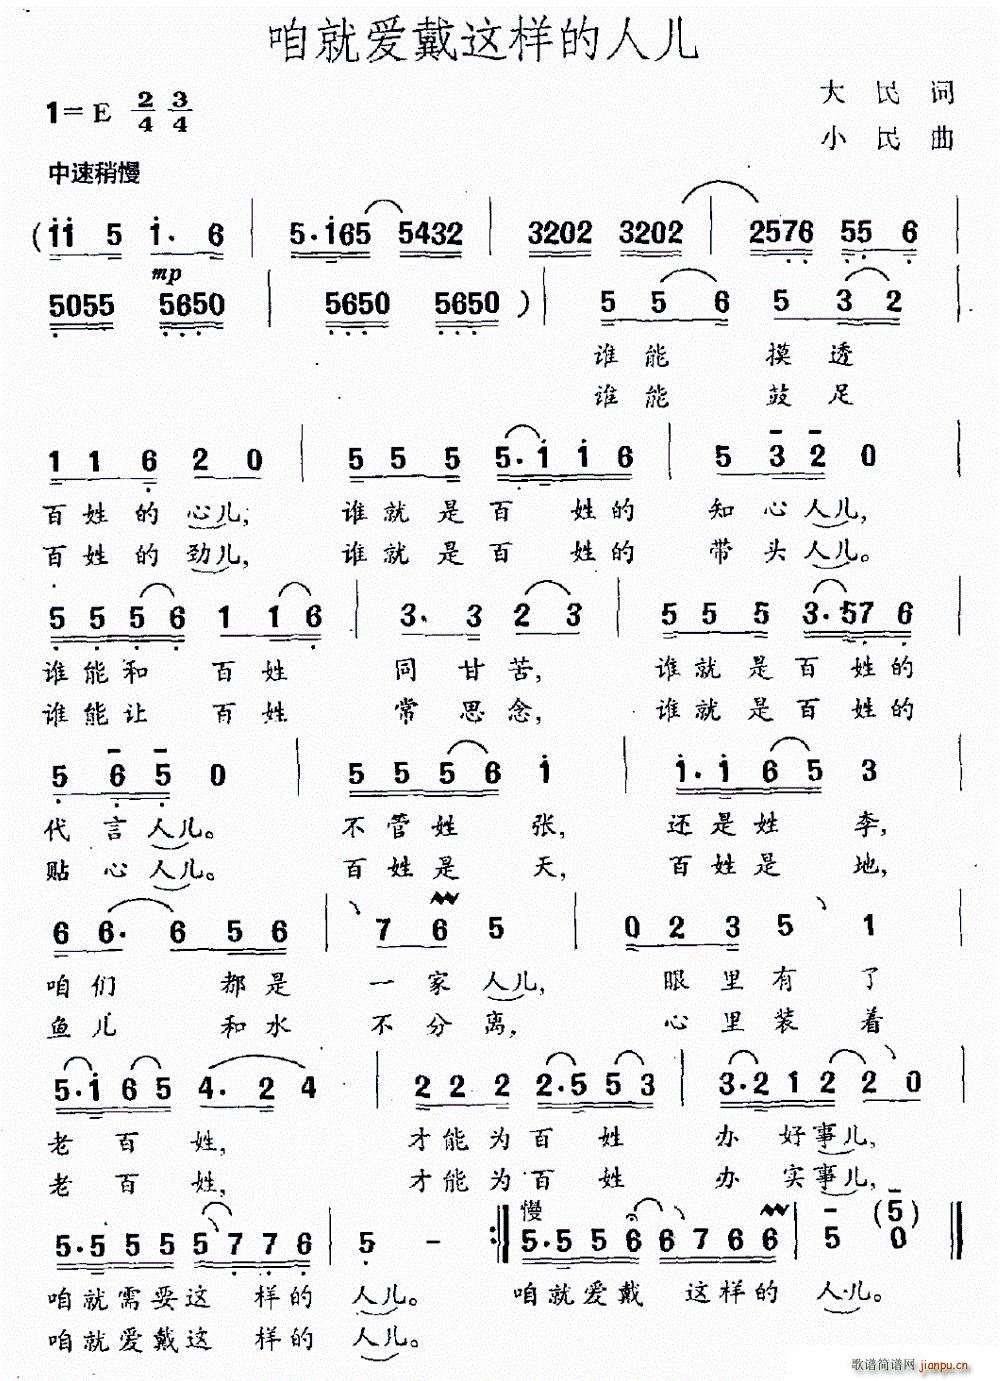 咱就爱戴这样的人儿
1=E 2/4 3/4
大民词
小民曲
中速稍慢
(i i 5 i· 6 | 5·i65 5432 | 3202 3202 | 2576 55 6 |
mp
5055 5650 | 5650 5650 ) | 5 5 6 5 3 2 |
谁能 摸透
谁能 鼓足
1 1 6 2 0 | 5 5 5 5·i i 6 | 5 3 2 0 |
百姓的心儿; 谁就是百姓的 知心人儿,
百姓的劲儿, 谁就是百姓的 带头人儿。
5 5 5 6 1 1 6 | 3· 3 2 3 | 5 5 5 3·57 6 |
谁能和 百姓 同甘苦, 谁就是百姓的
谁能让 百姓 常思念, 谁就是百姓的
5 6 5 0 | 5 5 5 6 i | i·i 6 5 3 |
代言人儿。 不管姓 张, 还是姓 李,
贴心人儿。 百姓是 天, 百姓是 地,
6 6· 6 5 6 | 7 6 5 | 0 2 3 5 1 |
咱们 都是 一家人儿, 眼里有了
鱼儿 和水 不分离, 心里装着
5·i 6 5 4· 2 4 | 2 2 2 2·5 5 3 | 3·2 1 2 2 0 |
老百姓, 才能为百姓 办好事儿,
老百姓, 才能为百姓 办实事儿,
慢
5·5 5 5 5 7 7 6 | 5 - :‖ 5·5 5 6 6 7 6 6 | 5 (5) 0 ‖
咱就需要这 样的 人儿。 咱就爱戴 这样的 人儿。
咱就爱戴这 样的 人儿。
歌谱简谱网 jianpu.cn